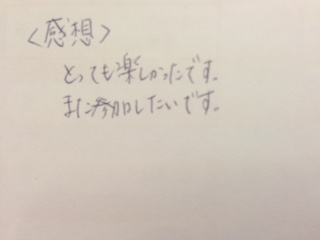 <感想>
とっても楽しかったです。
また参加したいです。